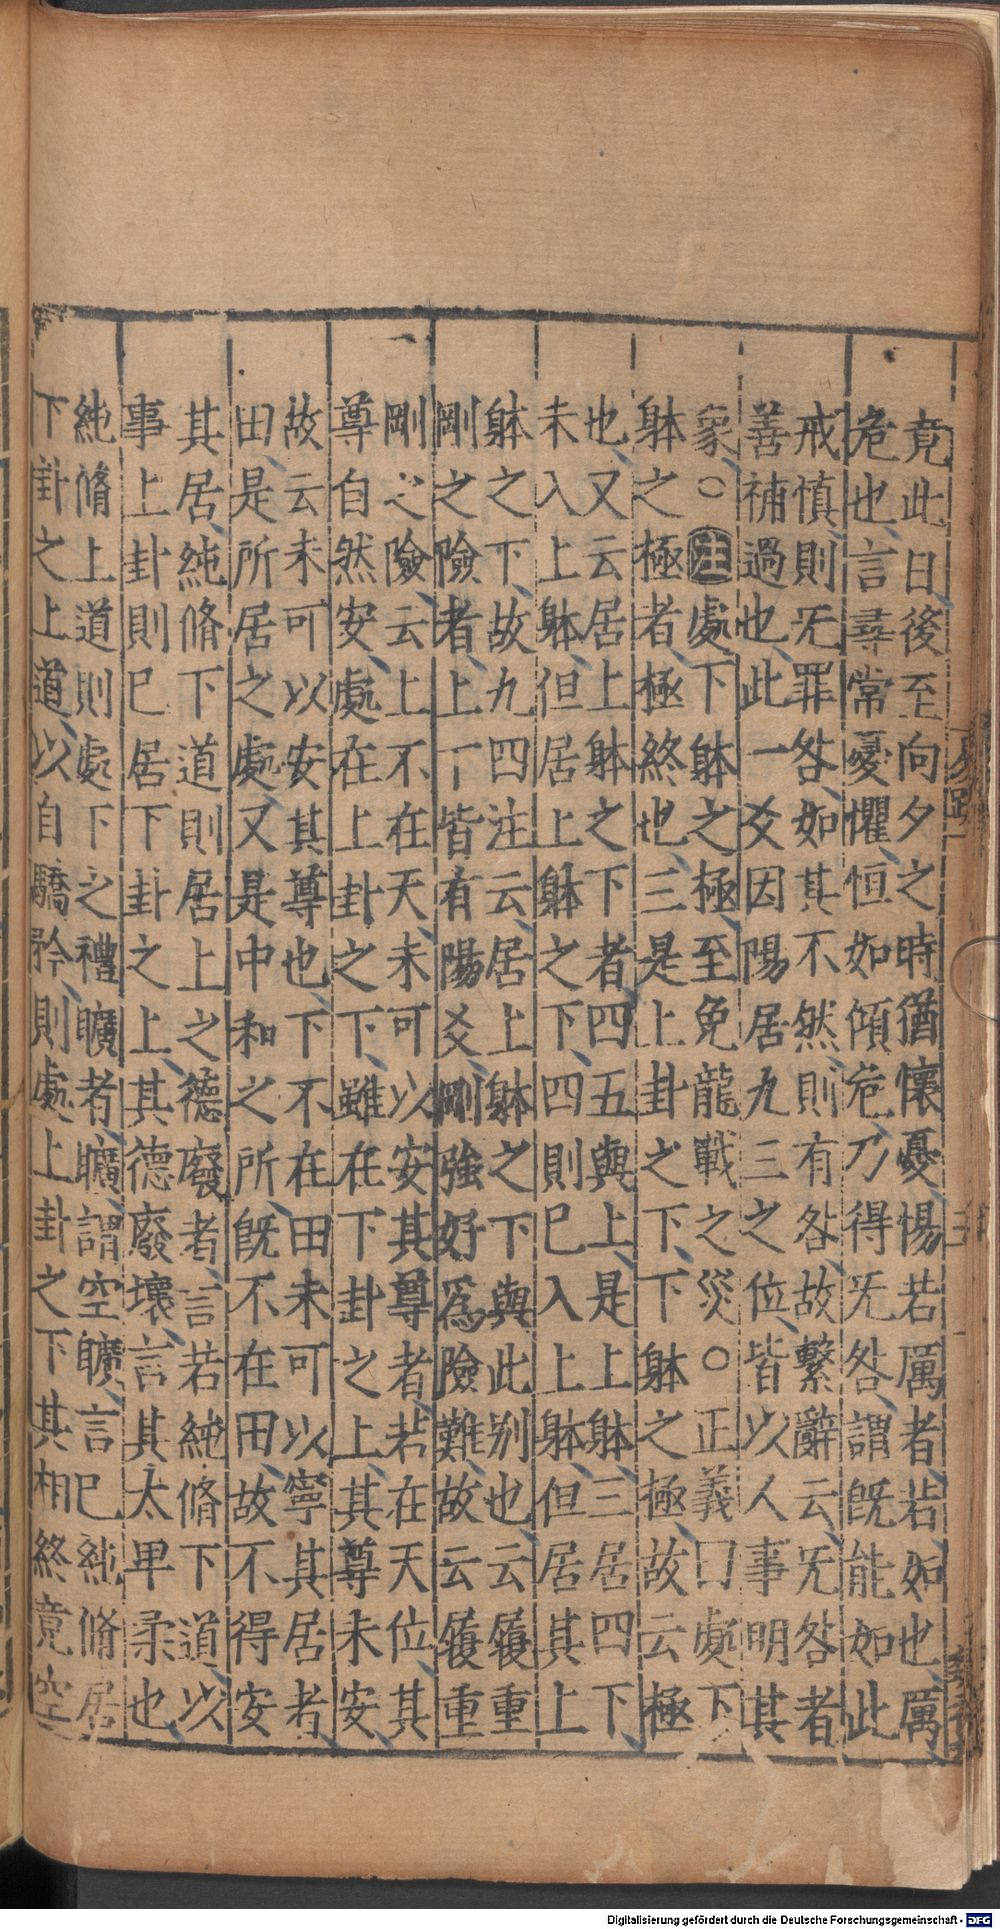 竟此日後至向夕之時猶懷憂惕若厲者若如也厲
危也言尋常憂懼恒如傾危乃得无咎謂旣能如此
戒慎則无罪咎如其不然則有咎故繫辭云无咎者
善補過也此一爻因陽居九三之位皆以人事明其
象○注處下躰之極至免龍戰之災○正義曰處下
躰之極者極終也三是上卦之下下躰之極故云極
也又云居上躰之下者四五與上是上躰三居四下
未入上躰但居上躰之下四則巳入上躰但居其上
躰之下故九四注云居上躰之下與此别也云履重
剛之險者上下皆有陽爻剛強好爲險難故云履重
剛之險云上不在天未可以安其尊者若在天位其
尊自然安處在上卦之下雖在下卦之上其尊未安
故云未可以安其尊也下不在田未可以寧其居者
田是所居之處又是中和之所旣不在田故不得安
其居純脩下道則居上之德廢者言若純脩下道以
事上卦則巳居下卦之上其德廢壞言其太卑柔也
純脩上道則處下之禮曠者曠謂空曠言巳純脩居
下卦之上道以自驕矜則處上卦之下其相終竟空
Digitalisierung gefördert durch die Deutsche Forschungsgemeinschaft - DFG